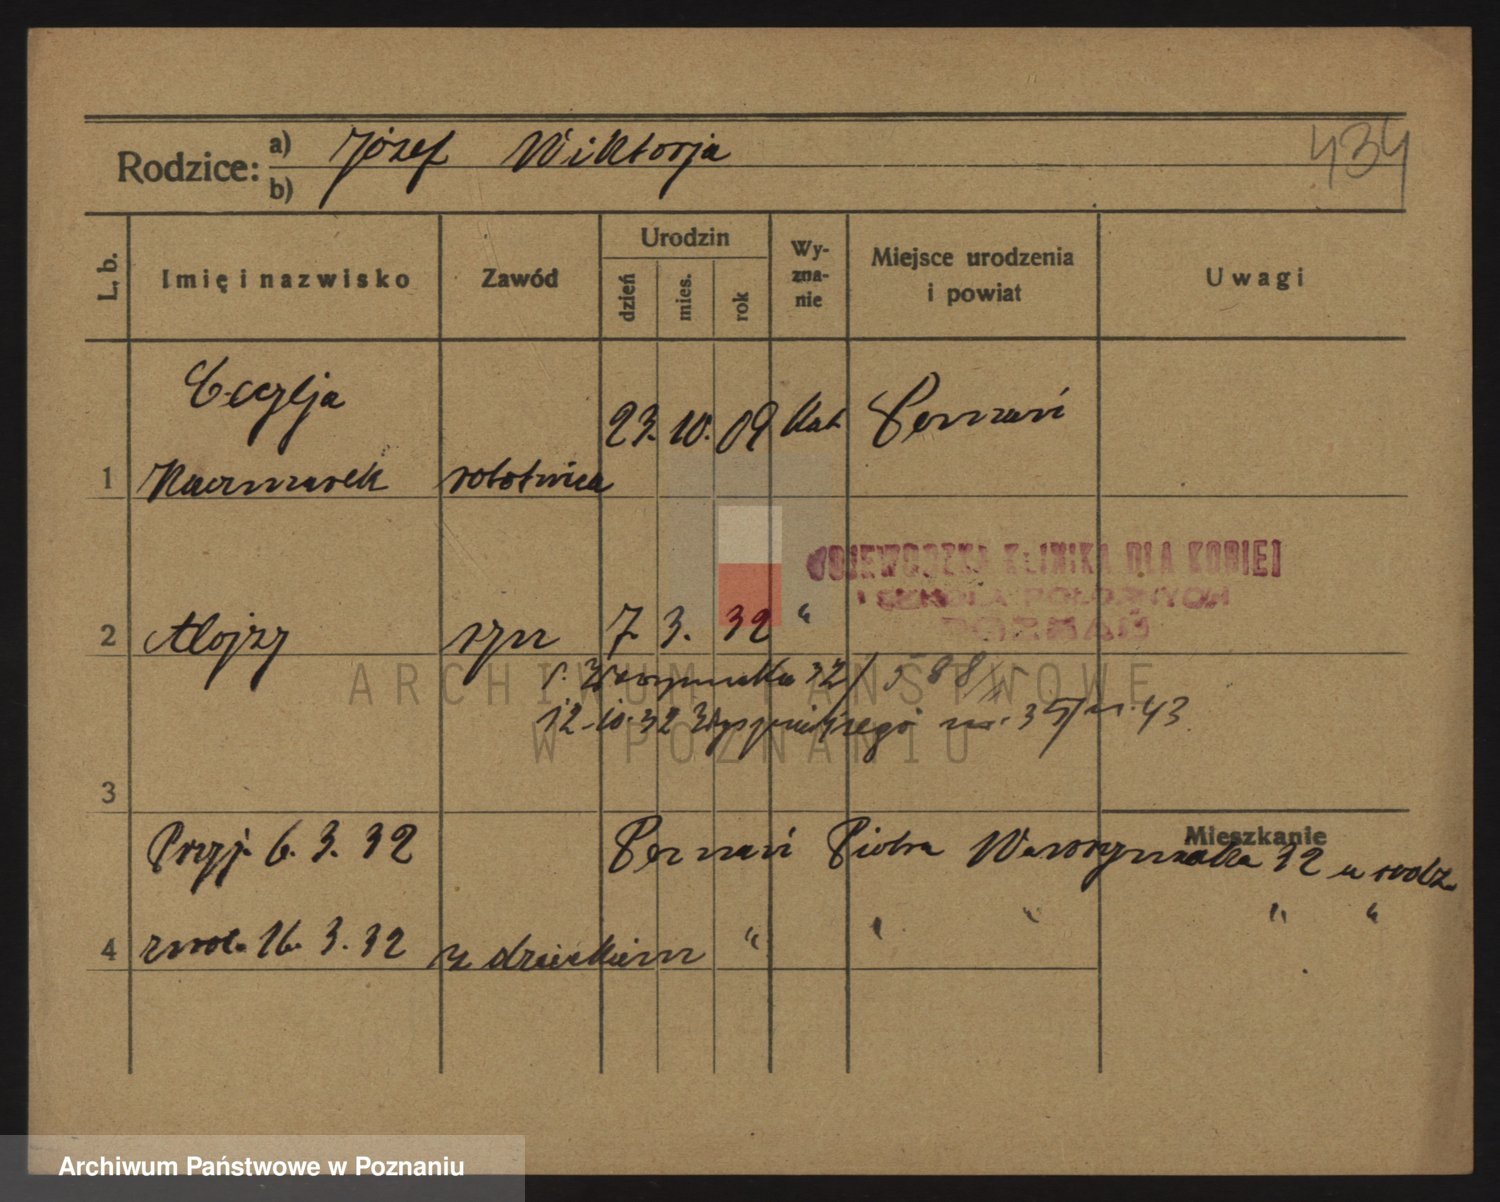 434
Rodzice: a) Józef Wiktorja
b)
L. b. Imię i nazwisko Zawód Urodzin dzień mies. rok Wy-zna-nie Miejsce urodzenia i powiat Uwagi
Cecylja
23. 10. 09 kat Poznań
1 Kaczmarek robotnica
WOJEWÓDZKA KLINIKA DLA KOBIET
I SZKOŁA POŁOŻNYCH
POZNAŃ
2 Alojzy syn 7. 3. 32 "
Wawrzyniaka 32/
12.10.32 nr. 35 m. 43
3
Mieszkanie
Przyj. 6. 3. 32 Poznań Piotra Wawrzyniaka 32 u rodz.
4 zwol. 16. 3. 32 z dzieckiem " " " " "
ARCHIWUM PAŃSTWOWE
W POZNANIU
Archiwum Państwowe w Poznaniu